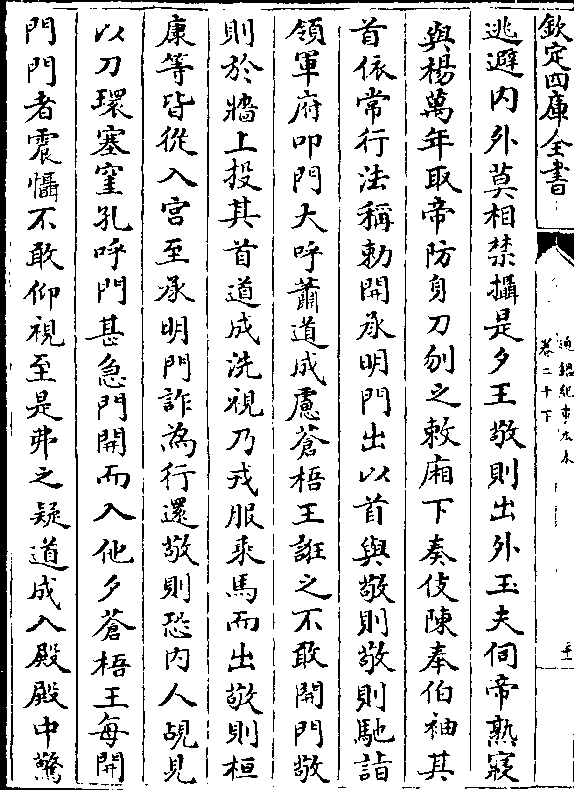 欽定四庫全書
通鑑紀事本末
卷二十下
逃避內外莫相禁攝是夕王敬則出外玉夫伺帝熟寢
與楊萬年取帝防身刀刎之敕廂下奏伎陳奉伯袖其
首依常行法稱勅開承明門出以首與敬則敬則馳詣
領軍府叩門大呼蕭道成慮蒼梧王誑之不敢開門敬
則於牆上投其首道成洗視乃戎服乘馬而出敬則桓
康等皆從入宮至承明門詐為行還敬則恐內人覘見
以刀環塞窐孔呼門甚急門開而入他夕蒼梧王每開
門門者震懾不敢仰視至是弗之疑道成入殿殿中驚